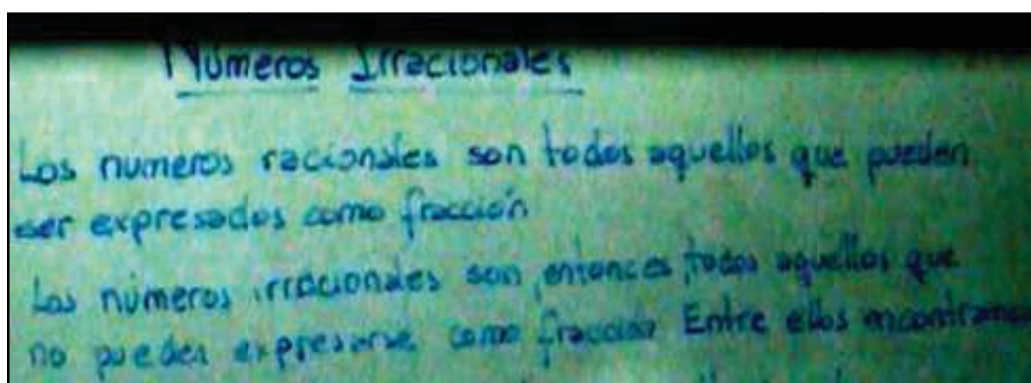 Números Irracionales
Los numeros racionales son todos aquellos que pueden
ser expresados como fracción
Los números irracionales son, entonces, todos aquellos que
no pueden expresarse como fracción Entre ellos encontramos